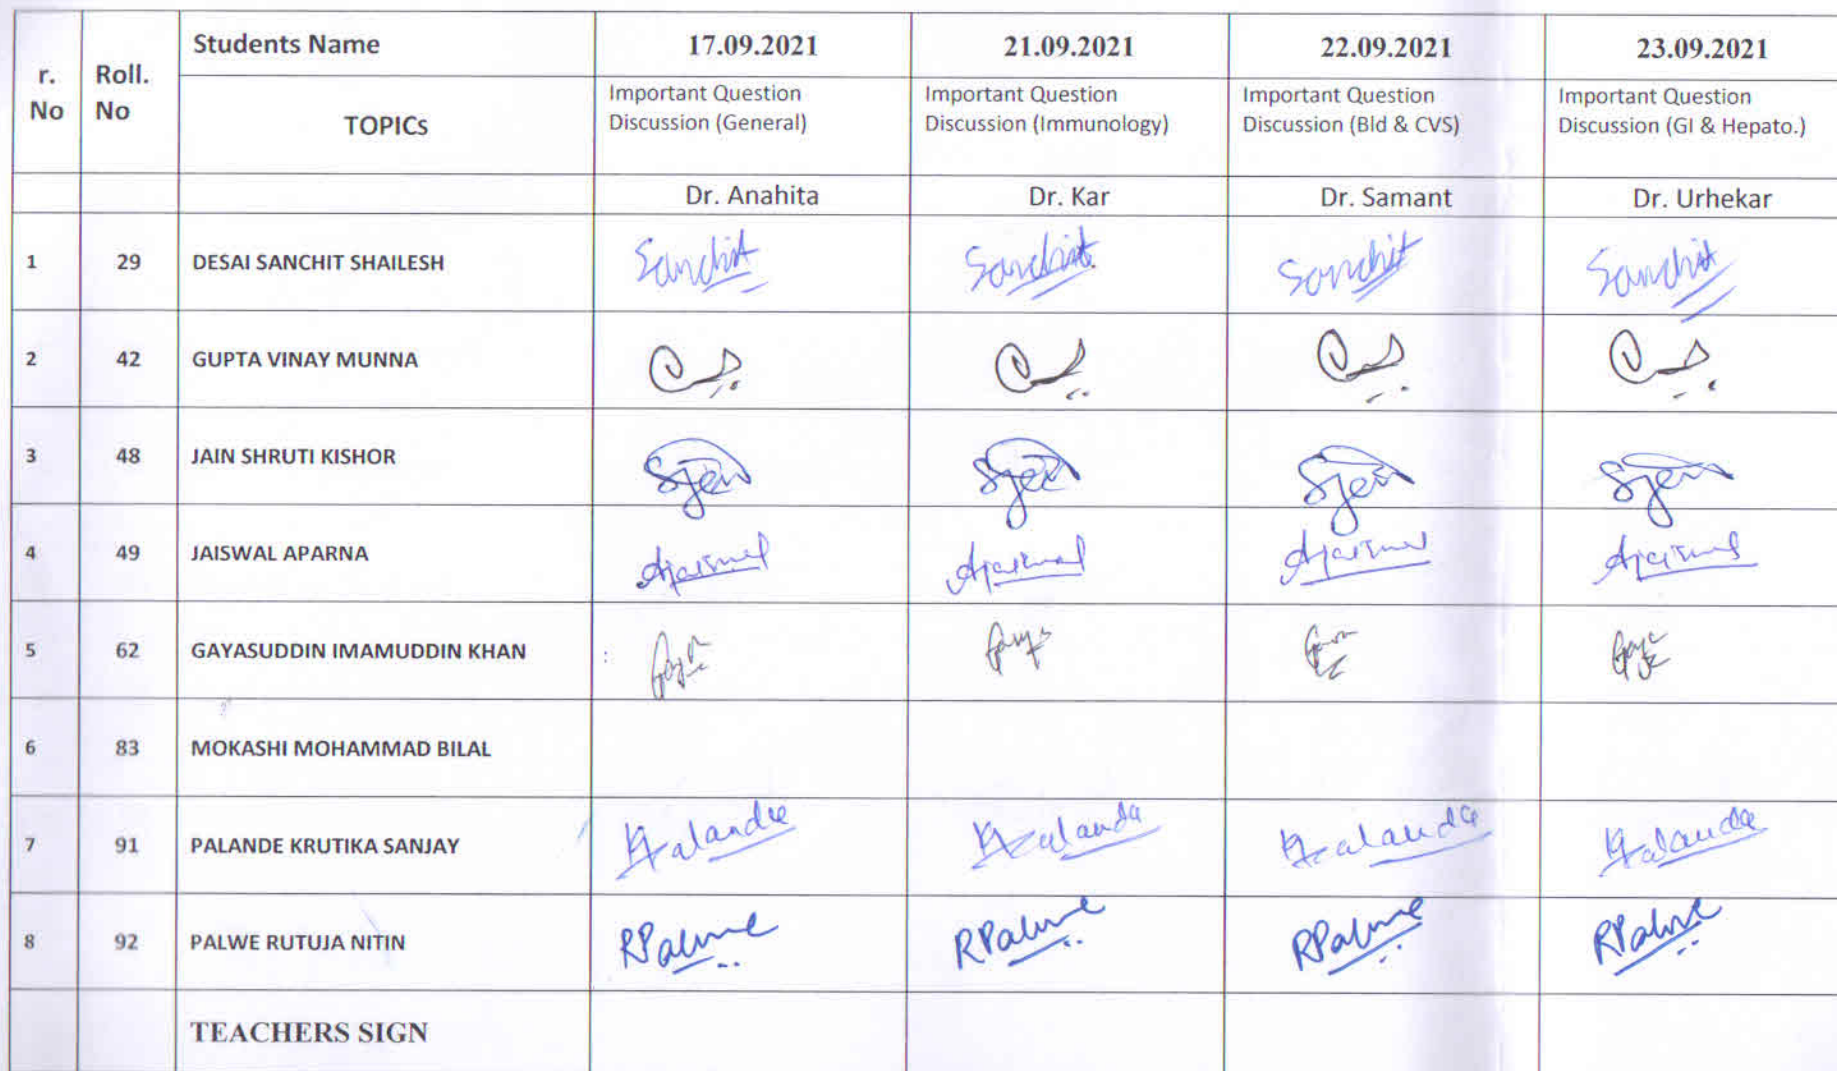 r. No Roll. No Students Name 17.09.2021 21.09.2021 22.09.2021 23.09.2021
TOPICs Important Question Discussion (General) Important Question Discussion (Immunology) Important Question Discussion (Bld & CVS) Important Question Discussion (GI & Hepato.)
Dr. Anahita Dr. Kar Dr. Samant Dr. Urhekar
1 29 DESAI SANCHIT SHAILESH Sanchit Sanchit Sanchit Sanchit
2 42 GUPTA VINAY MUNNA
3 48 JAIN SHRUTI KISHOR
4 49 JAISWAL APARNA Ajaiswal Ajaiswal Ajaiswal Ajaiswal
5 62 GAYASUDDIN IMAMUDDIN KHAN
6 83 MOKASHI MOHAMMAD BILAL
7 91 PALANDE KRUTIKA SANJAY
8 92 PALWE RUTUJA NITIN RPalwe RPalwe RPalwe RPalwe
TEACHERS SIGN